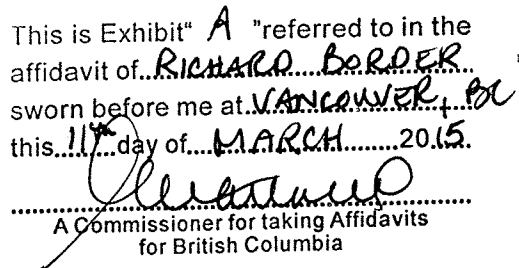 This is Exhibit" A "referred to in the
affidavit of..RICHARD BORDER
sworn before me at.VANCOUVER, BC
this 11th day of....MARCH........2015.
A Commissioner for taking Affidavits
for British Columbia